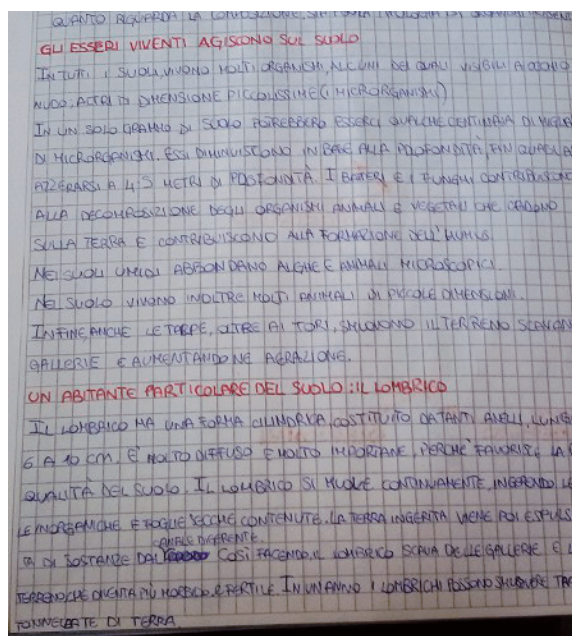 QUANTO RIGUARDA LA COMPOSIZIONE, SIA
GLI ESSERI VIVENTI AGISCONO SUL SUOLO
IN TUTTI I SUOLI VIVONO MOLTI ORGANISMI, ALCUNI DEI QUALI VISIBILI A OCCHIO
NUDO, ALTRI DI DIMENSIONE PICCOLISSIME (I MICRORGANISMI)
IN UN SOLO GRAMMO DI SUOLO POTREBBERO ESSERCI QUALCHE CENTINAIA DI
DI MICRORGANISMI. ESSI DIMINUISCONO IN BASE ALLA PROFONDITÀ, FIN QUASI A
AZZERARSI A 4-5 METRI DI PROFONDITÀ. I BATTERI E I FUNGHI CONTRIBUISCONO
ALLA DECOMPOSIZIONE DEGLI ORGANISMI ANIMALI E VEGETALI CHE CADONO
SULLA TERRA E CONTRIBUISCONO ALLA FORMAZIONE DELL'HUMUS.
NEI SUOLI UMIDI ABBONDANO ALGHE E ANIMALI MICROSCOPICI.
NEL SUOLO VIVONO INOLTRE MOLTI ANIMALI DI PICCOLE DIMENSIONI.
INFINE, ANCHE LE TALPE, OLTRE AI TOPI, SMUOVONO IL TERRENO SCAVANDO
GALLERIE E AUMENTANDONE AERAZIONE.
UN ABITANTE PARTICOLARE DEL SUOLO: IL LOMBRICO
IL LOMBRICO HA UNA FORMA CILINDRICA, COSTITUITO DA TANTI ANELLI, LUNGO
6 A 10 CM. È MOLTO DIFFUSO E MOLTO IMPORTANE, PERCHÉ FAVORISCE LA
QUALITÀ DEL SUOLO. IL LOMBRICO SI MUOVE CONTINUAMENTE, INGERENDO LE
LE INORGANICHE E FOGLIE SECCHE CONTENUTE. LA TERRA INGERITA VIENE POI ESPULS
CANALE DIGERENTE.
TA DI SOSTANZE DAL COSÌ FACENDO, IL LOMBRICO SCAVA DELLE GALLERIE E
TERRENO CHE DIVENTA PIÙ MORBIDO E FERTILE. IN UN ANNO I LOMBRICHI POSSONO SMUOVERE
TONNELLATE DI TERRA